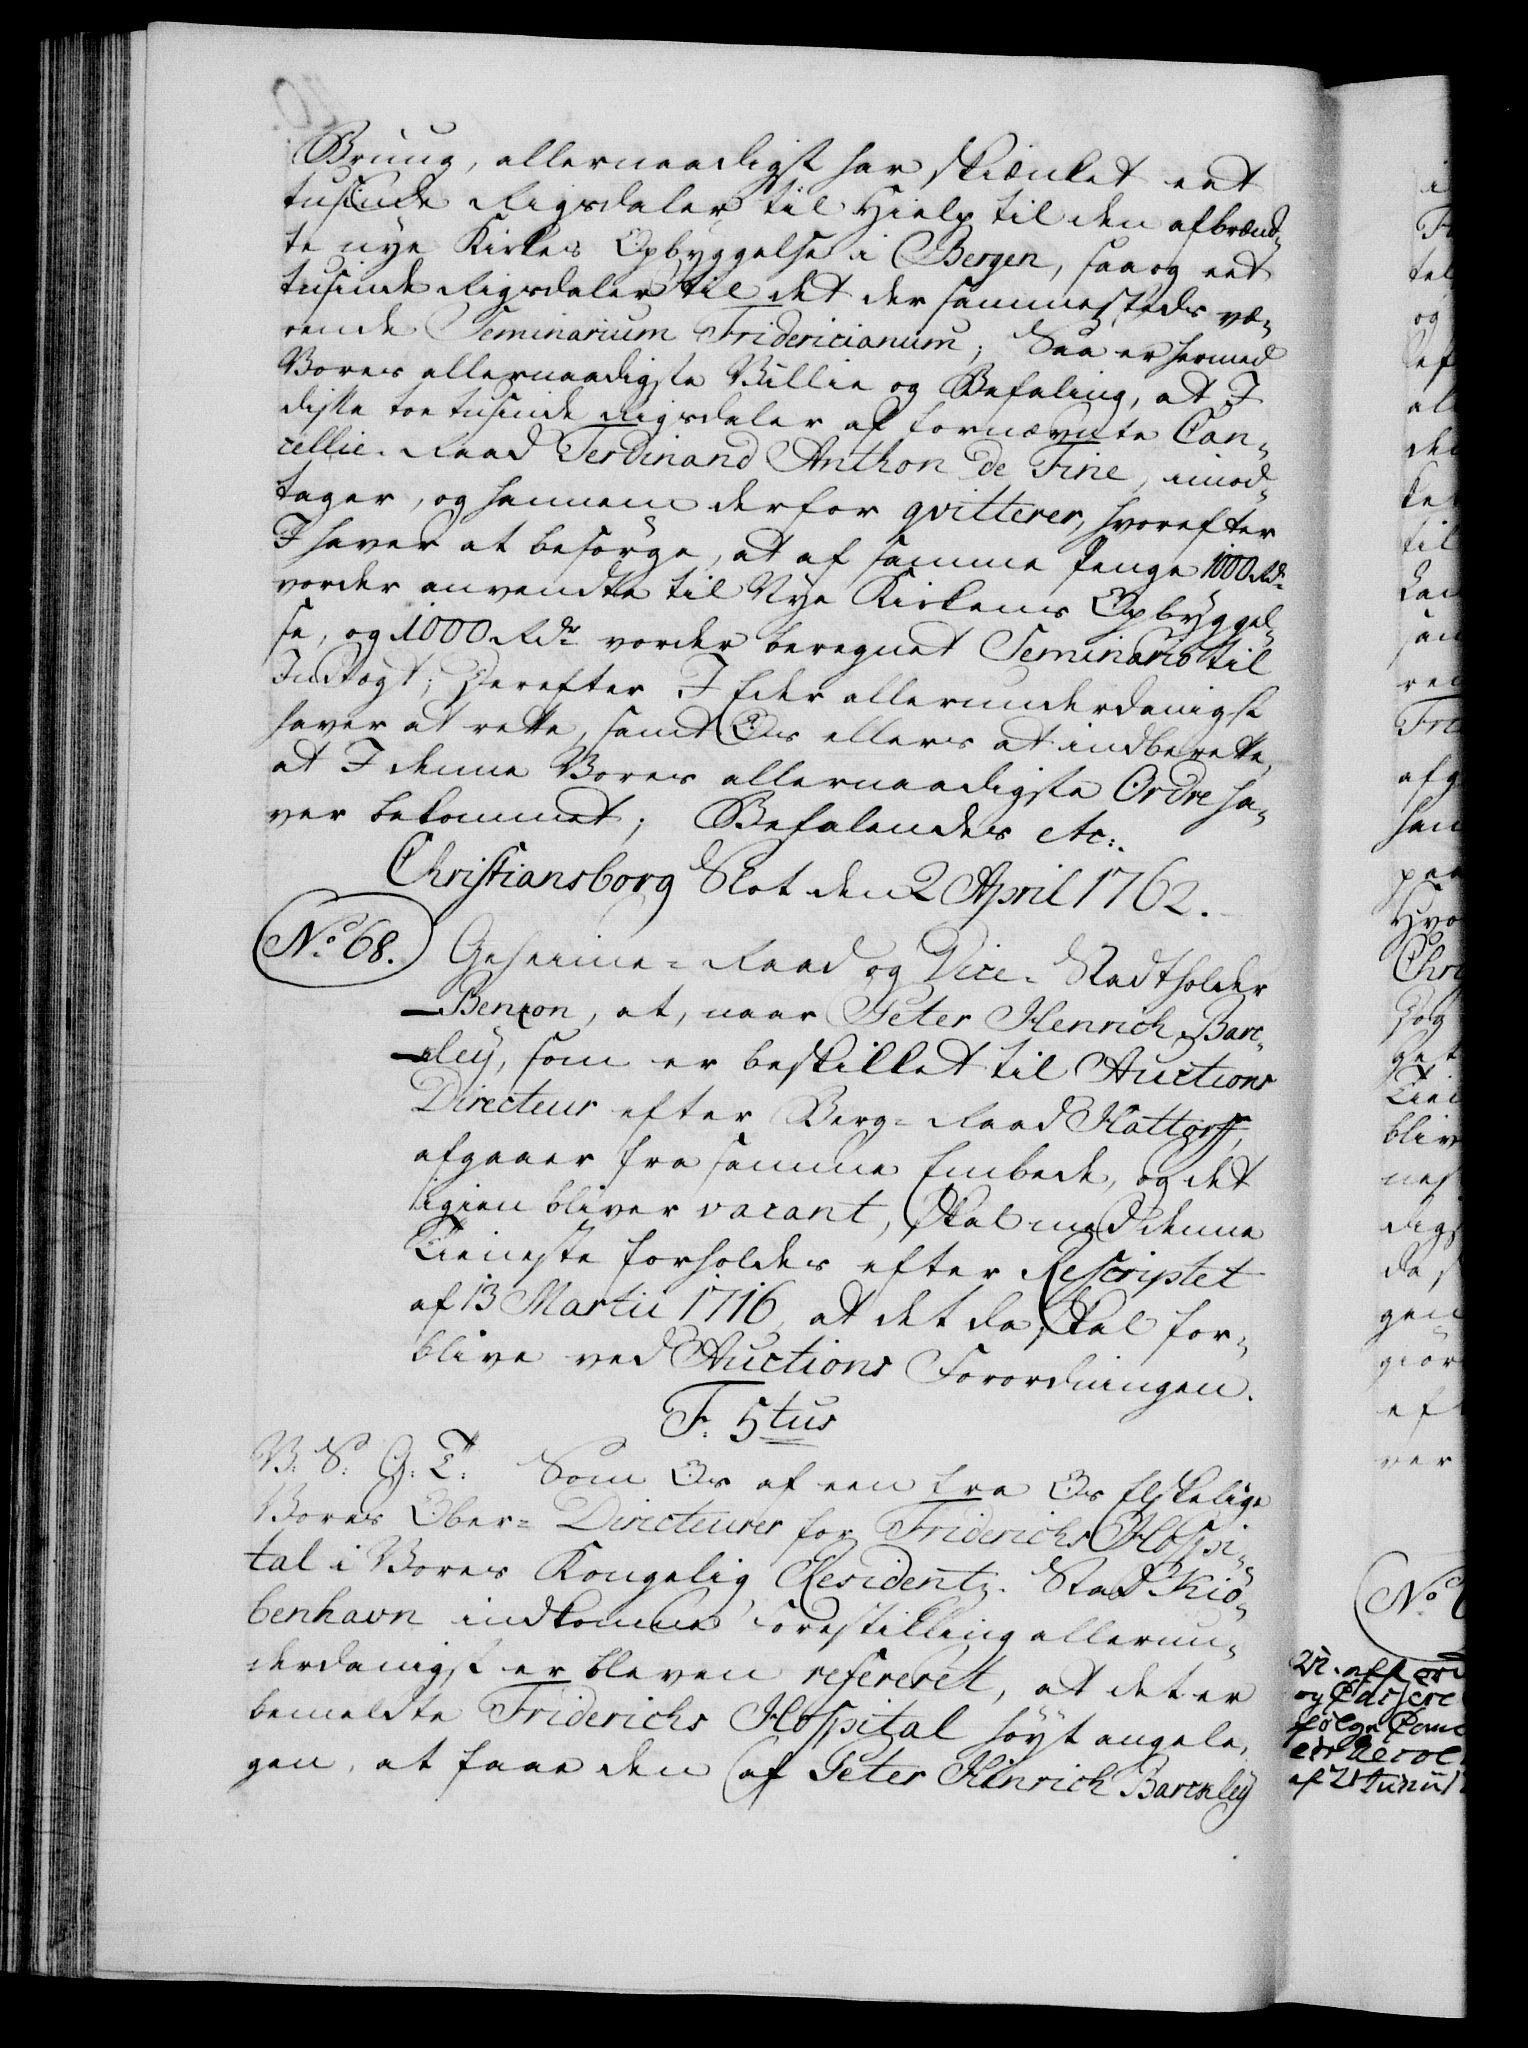 Bruug, allernaadigst har skiænket eet
tusinde Rigsdaler til Hielp til den afbrænd-
te nye Kirkes Opbyggelse i Bergen, saa og eet
tusinde Rigsdaler til det der sammesteds væ-
rende Seminarium Fridericianum; Saa er hermed
Vores allernaadigste Villie og Befaling, at I
diske toe tusinde Rigsdaler af fornævnte Can-
cellie-Raad Ferdinand Anthon de Fine, imod-
tager, og hannem derfor qvitterer, hvorefter
I haver at besørge, at af samme Penge 1000 Rdr
vorder anvendte til Nye Kirkens Opbyggel-
se, og 1000 Rdr vorder beregnet Seminario til
Indtægt; Derefter I Eder allerunderdanigst
haver at rette, samt Os ellers at indberette,
at I denne Vores allernaadigste Ordre ha-
ver bekommet; Befalendes etc:
Christiansborg Slot den 2 April 1762.
No. 68. Geheime-Raad og Vice-Stadtholder
Benzon, at, naar Peter Henrich Barc-
kley, som er beskikket til Auctions
Directeur efter Berg-Raad Hattorff,
afgaaer fra samme Embede, og det
igien bliver vacant, skal med denne
Tieneste forholdes efter Rescriptet
af 13 Martii 1716, at det da skal for-
blive ved Auctions Forordningen.
F. 5tus
V: S: G: T: Som Os af een fra Os Elskelige
Vores Ober-Directeurer for Friderichs Hospi-
tal i Vores Kongelig Residentz-Stad Kiø-
benhavn indkomne Forestilling allerun-
derdanigst er bleven refereret, at det er
bemeldte Friderichs Hospital høyt angele-
gen, at faae den af Peter Hinrich Barckley